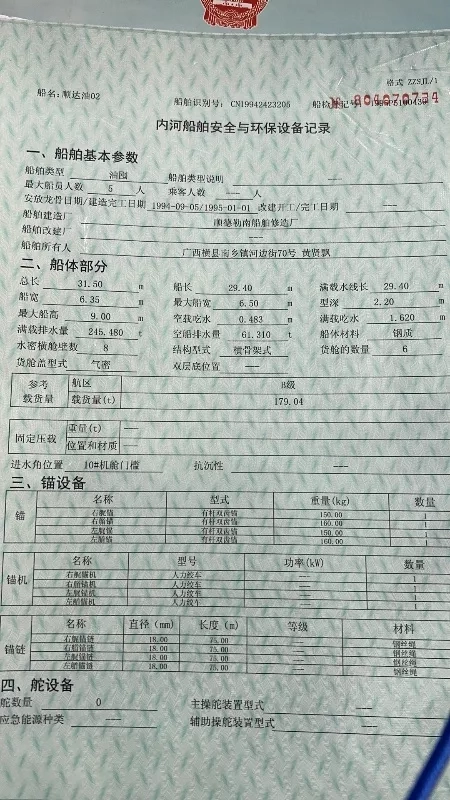 格式 ZZSJL/1
船名: 顺达油02 船舶识别号: CN19942423205 船检登记号:
№ 804070754
内河船舶安全与环保设备记录
一、船舶基本参数
船舶类型 油囤 船舶类型说明 ---
最大船员人数 5 人 乘客人数 --- 人
安放龙骨日期/建造完工日期 1994-09-05/1995-01-01 改建开工/完工日期 ---
船舶建造厂 顺德勒南船舶修造厂
船舶改建厂 ---
船舶所有人 广西横县南乡镇河边街70号 黄贤飘
二、船体部分
总长 31.50 m 船长 29.40 m 满载水线长 29.40 m
船宽 6.35 m 最大船宽 6.50 m 型深 2.20 m
最大船高 9.00 m 空载吃水 0.483 m 满载吃水 1.620 m
满载排水量 245.480 t 空船排水量 61.310 t 船体材料 钢质
水密横舱壁数 8 结构型式 横骨架式 货舱的数量 6
货舱盖型式 气密 双层底位置 ---
参考载货量 航区 B级
载货量(t) 179.04
固定压载 重量(t) ---
位置和材质 ---
进水角位置 10#机舱门槛 抗沉性 ---
三、锚设备
锚 名称 型式 重量(kg) 数量
右艉锚 有杆双齿锚 150.00 1
右艏锚 有杆双齿锚 160.00 1
左艉锚 有杆双齿锚 150.00 1
左艏锚 有杆双齿锚 160.00 1
锚机 名称 型号 功率(kW) 数量
右艉锚机 人力绞车 --- 1
右艏锚机 人力绞车 --- 1
左艉锚机 人力绞车 --- 1
左艏锚机 人力绞车 --- 1
锚链 名称 直径 (mm) 长度 (m) 等级 材料
右艉锚链 18.00 75.00 --- 钢丝绳
右艏锚链 18.00 75.00 --- 钢丝绳
左艉锚链 18.00 75.00 --- 钢丝绳
左艏锚链 18.00 75.00 --- 钢丝绳
四、舵设备
舵数量 0 主操舵装置型式 ---
应急能源种类 --- 辅助操舵装置型式 ---